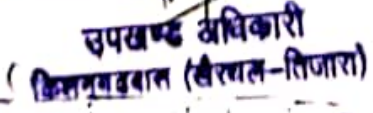 उपखण्ड अधिकारी
( किशनगढबास (खैरथल-तिजारा)